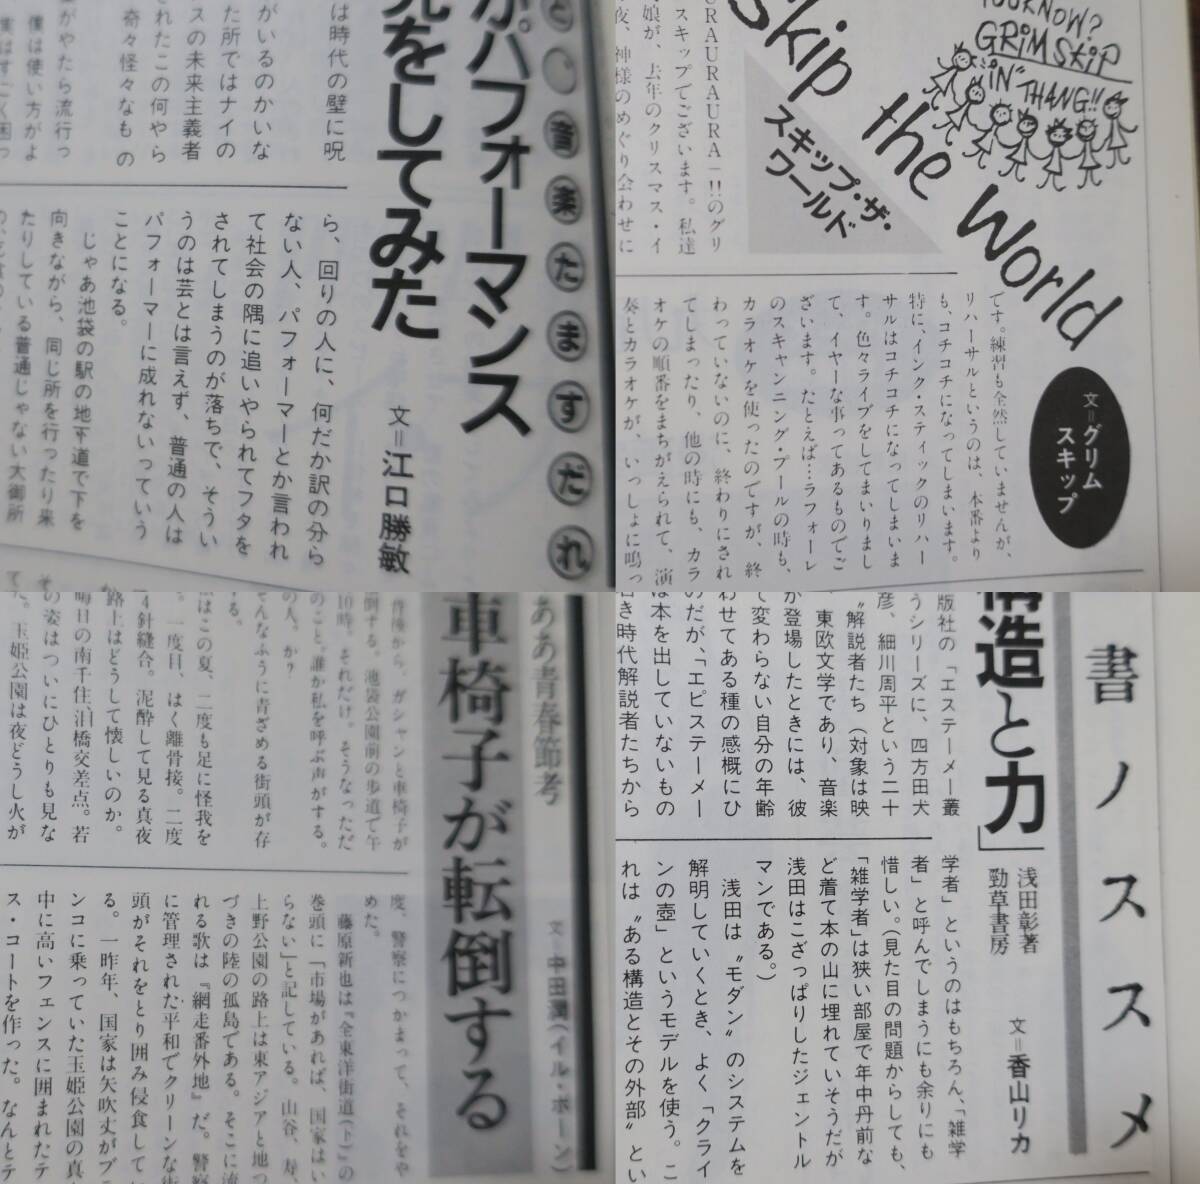 音楽たますだれ
がパフォーマンス
究をしてみた
文＝江口勝敏
は時代の壁に呪
がいるのかいな
た所ではナイの
スの未来主義者
されたこの何やら
奇々怪々なもの
がやたら流行っ
僕は使い方がよ
ら、回りの人に、何だか訳の分ら
ない人、パフォーマーとか言われ
て社会の隅に追いやられてフタを
されてしまうのが落ちで、そうい
うのは芸とは言えず、普通の人は
パフォーマーに成れないっていう
ことになる。
じゃあ池袋の駅の地下道で下を
向きながら、同じ所を行ったり来
たりしている普通じゃない大御所
YOU KNOW?
GRIM SKIP
"IN" THANG!!
Skip the World
スキップ・ザ・
ワールド
文＝グリム
スキップ
URAURAURA―!!のグリ
スキップでございます。私達
娘が、去年のクリスマス・イ
夜、神様のめぐり会わせに
です。練習も全然していませんが、
リハーサルというのは、本番より
も、コチコチになってしまいます。
特に、インク・スティックのリハー
サルはコチコチになってしまいま
す。色々ライブをしてまいりまし
て、イヤーな事ってあるものでご
ざいます。たとえば…ラフォーレ
のスキャンニング・プールの時も、
カラオケを使ったのですが、終
わっていないのに、終わりにされ
てしまったり、他の時にも、カラ
オケの順番をまちがえられて、演
奏とカラオケが、いっしょに鳴っ
ああ青春節考
車椅子が転倒する
文＝中田潤（イル・ボーン）
件後から、ガシャンと車椅子が
倒する。池袋公園前の歩道で午
10時。それだけ。そうなっただ
のこと。誰か私を呼ぶ声がする。
の人。か？
そんなふうに青ざめる街頭が存
する。
はこの夏、二度も足に怪我を
。一度目、はく離骨接。二度
4針縫合。泥酔して見る真夜
路上はどうして懐しいのか。
晦日の南千住泪橋交差点。若
の姿はついにひとりも見な
た。玉姫公園は夜どうし火が
度、警察につかまって、それをや
めた。
藤原新也は『全東洋街道（下）』の
巻頭に「市場があれば、国家はい
らない」と記している。山谷、寿、
上野公園の路上は東アジアと地つ
づきの陸の孤島である。そこに流
れる歌は『網走番外地』だ。警察
に管理された平和でクリーンな街
頭がそれをとり囲み侵食して
る。一昨年、国家は矢吹丈がブ
ンコに乗っていた玉姫公園の真
中に高いフェンスに囲まれたテ
ス・コートを作った。なんとテ
書ノススメ
構造と力」
浅田彰著
勁草書房
文＝香山リカ
版社の「エステーメー叢
うシリーズに、四方田犬
彦、細川周平という二十
〝解説者たち（対象は映
、東欧文学であり、音楽
が登場したときには、彼
て変わらない自分の年齢
わせてある種の感概にひ
のだが、「エピステーメー
は本を出していないもの
き時代解説者たちから
学者」というのはもちろん、「雑学
者」と呼んでしまうにも余りにも
惜しい。（見た目の問題からしても、
「雑学者」は狭い部屋で年中丹前な
ど着て本の山に埋れていそうだが
浅田はこざっぱりしたジェントル
マンである。）
浅田は〝モダン〟のシステムを
解明していくとき、よく「クライ
ンの壺」というモデルを使う。こ
れは〝ある構造とその外部〟とい